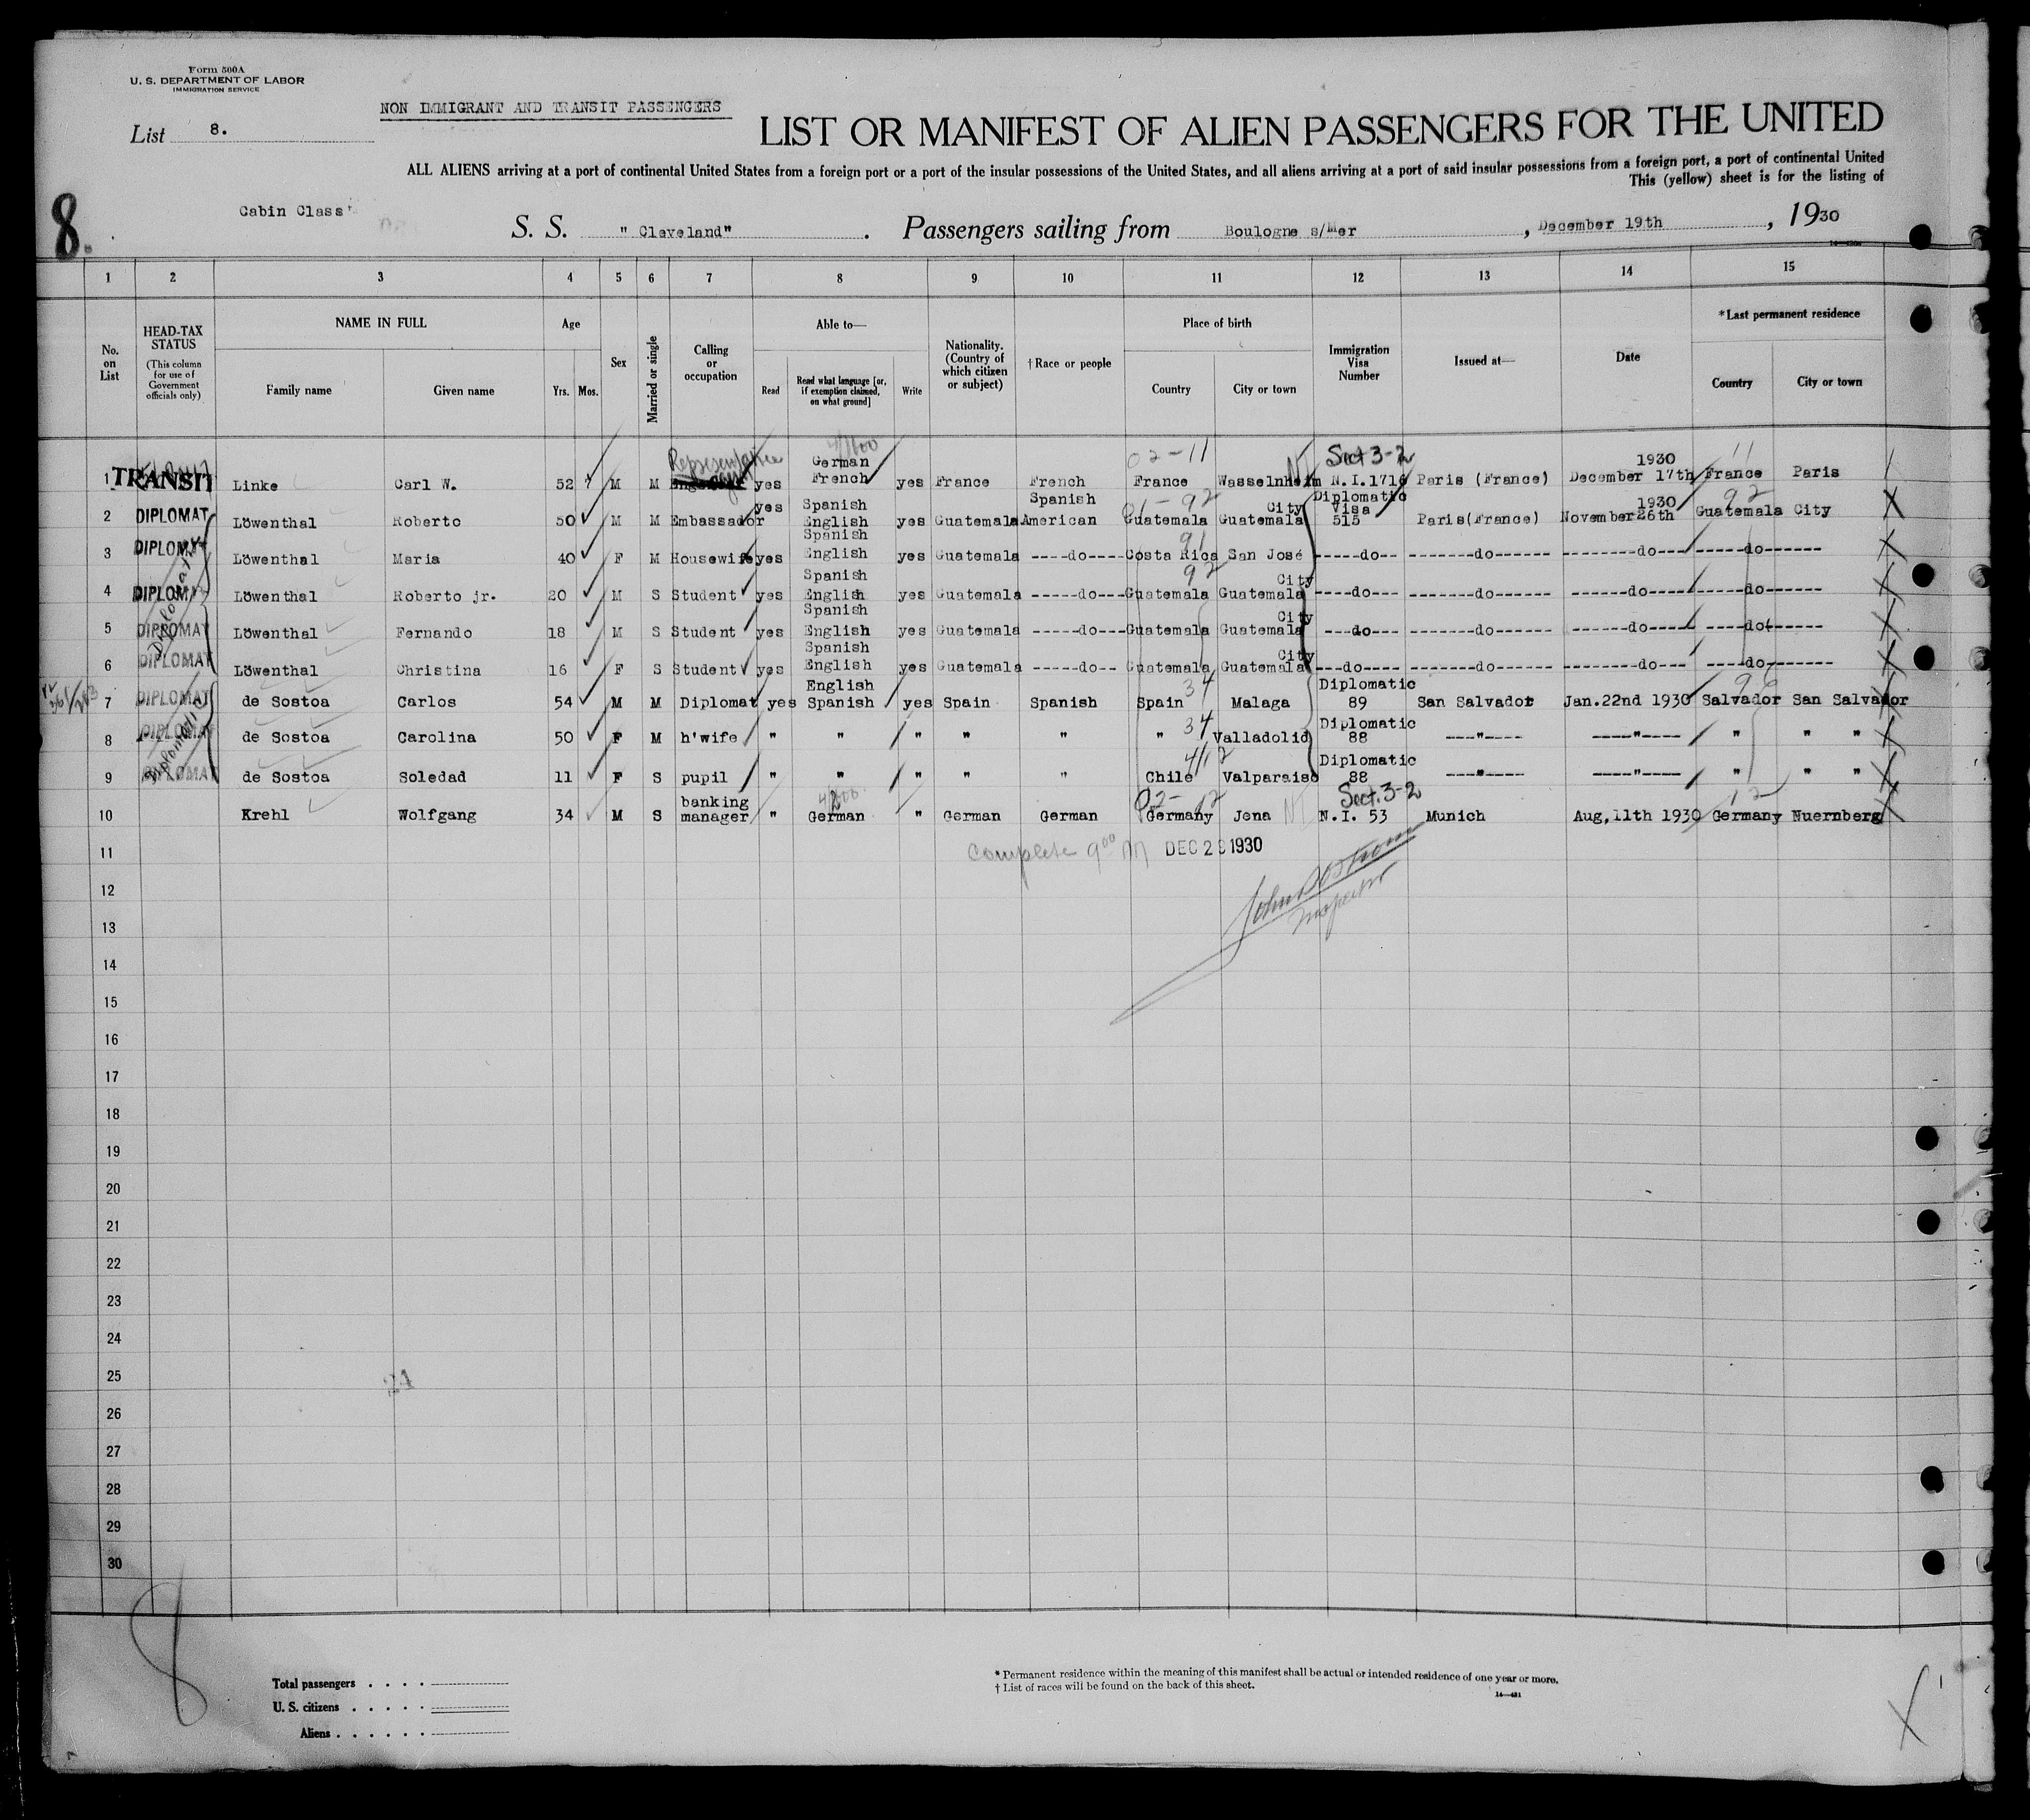 Form 500A
U. S. DEPARTMENT OF LABOR
IMMIGRATION SERVICE
NON IMMIGRANT AND TRANSIT PASSENGERS
List 8.
LIST OR MANIFEST OF ALIEN PASSENGERS FOR THE UNITED
ALL ALIENS arriving at a port of continental United States from a foreign port or a port of the insular possessions of the United States, and all aliens arriving at a port of said insular possessions from a foreign port, a port of continental United
This (yellow) sheet is for the listing of
8.
Cabin Class
S. S. " Cleveland" . Passengers sailing from Boulogne s/Mer , December 19th , 1930
1 2 3 4 5 6 7 8 9 10 11 12 13 14 15
No. on List
HEAD-TAX STATUS
(This column for use of Government officials only)
NAME IN FULL
Family name Given name
Age
Yrs. Mos.
Sex
Married or single
Calling or occupation
Able to—
Read
Read what language [or, if exemption claimed, on what ground]
Write
Nationality. (Country of which citizen or subject)
†Race or people
Place of birth
Country City or town
Immigration Visa Number
Issued at—
Date
*Last permanent residence
Country City or town
02-11 Sect 3-2 11
Representative German 1930
1 TRANSIT Linke Carl W. 52 M M yes French yes France French France Wasselnheim N.I.1716 Paris (France) December 17th France Paris
yes Spanish Spanish 01-92 City Diplomatic Visa 1930 92
2 DIPLOMAT Löwenthal Roberto 50 M M Embassador English yes Guatemala American Guatemala Guatemala 515 Paris(France) November 26th Guatemala City
Spanish 91
3 DIPLOMAT Löwenthal Maria 40 F M Housewife yes English yes Guatemala ----do---- Costa Rica San José -----do-- -------do------ --------do---- -----do------
Spanish 92 City
4 DIPLOMAT Löwenthal Roberto jr. 20 M S Student yes English yes Guatemala -----do--- Guatemala Guatemala ----do--- -------do------ -------do---- ----do------
Spanish City
5 DIPLOMAT Löwenthal Fernando 18 M S Student yes English yes Guatemala -----do--- Guatemala Guatemala ---do--- -------do------ ------do---- ----do------
Spanish City
6 DIPLOMAT Löwenthal Christina 16 F S Student yes English yes Guatemala -----do-- Guatemala Guatemala ---do--- -------do------ --------do--- ----do-------
English 34 Diplomatic
7 DIPLOMAT de Sostoa Carlos 54 M M Diplomat yes Spanish yes Spain Spanish Spain Malaga 89 San Salvador Jan.22nd 1930 Salvador San Salvador
34 Diplomatic
8 DIPLOMAT de Sostoa Carolina 50 F M h'wife " " " " " " Valladolid 88 ---"---- ----"---- " " "
Diplomatic
9 DIPLOMAT de Sostoa Soledad 11 F S pupil " " " " " Chile Valparaiso 88 ---"---- ----"---- " " "
banking 02- 12 Sect. 3-2 12
10 Krehl Wolfgang 34 M S manager " German " German German Germany Jena NI N.I. 53 Munich Aug,11th 1930 Germany Nuernberg
Complete 9 00 M DEC 28 1930
11
12
Inspector
13
14
15
16
17
18
19
20
21
22
23
24
25
21
26
27
28
29
30
8
Total passengers . . . .
U. S. citizens . . . . .
Aliens . . . . . .
* Permanent residence within the meaning of this manifest shall be actual or intended residence of one year or more.
† List of races will be found on the back of this sheet.